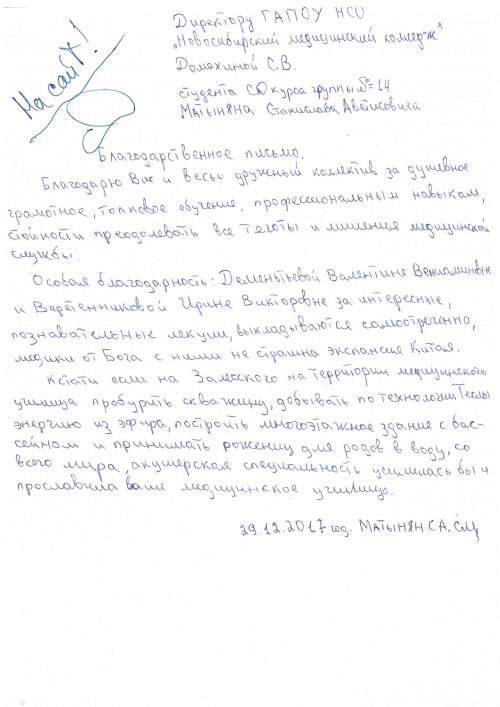 На сайт!
Директору ГАПОУ НСО
„Новосибирский медицинский колледж"
Домахиной С.В.
студента СД курса группы №14
Матыняна Станислава Аветисовича
Благодарственное письмо.
Благодарю Вас и весь дружный коллектив за душевное
грамотное, толковое обучение, профессиональным навыкам,
стойкости преодолевать все тяготы и лишения медицинской
службы.
Особая благодарность: Дементьевой Валентине Вениаминовне
и Веретенниковой Ирине Викторовне за интересные,
познавательные лекции, выкладываются самоотреченно,
медики от Бога с ними не страшна экспансия Китая.
Кстати если на Залесского на территории медицинского
училища пробурить скважину, добывать по технологии Теслы
энергию из эфира, построить многоэтажное здание с бас-
сейном и принимать рожениц для родов в воду, со
всего мира, акушерская специальность усилилась бы и
прославила ваше медицинское училище.
29.12.2017 год. Матынян. С.А.